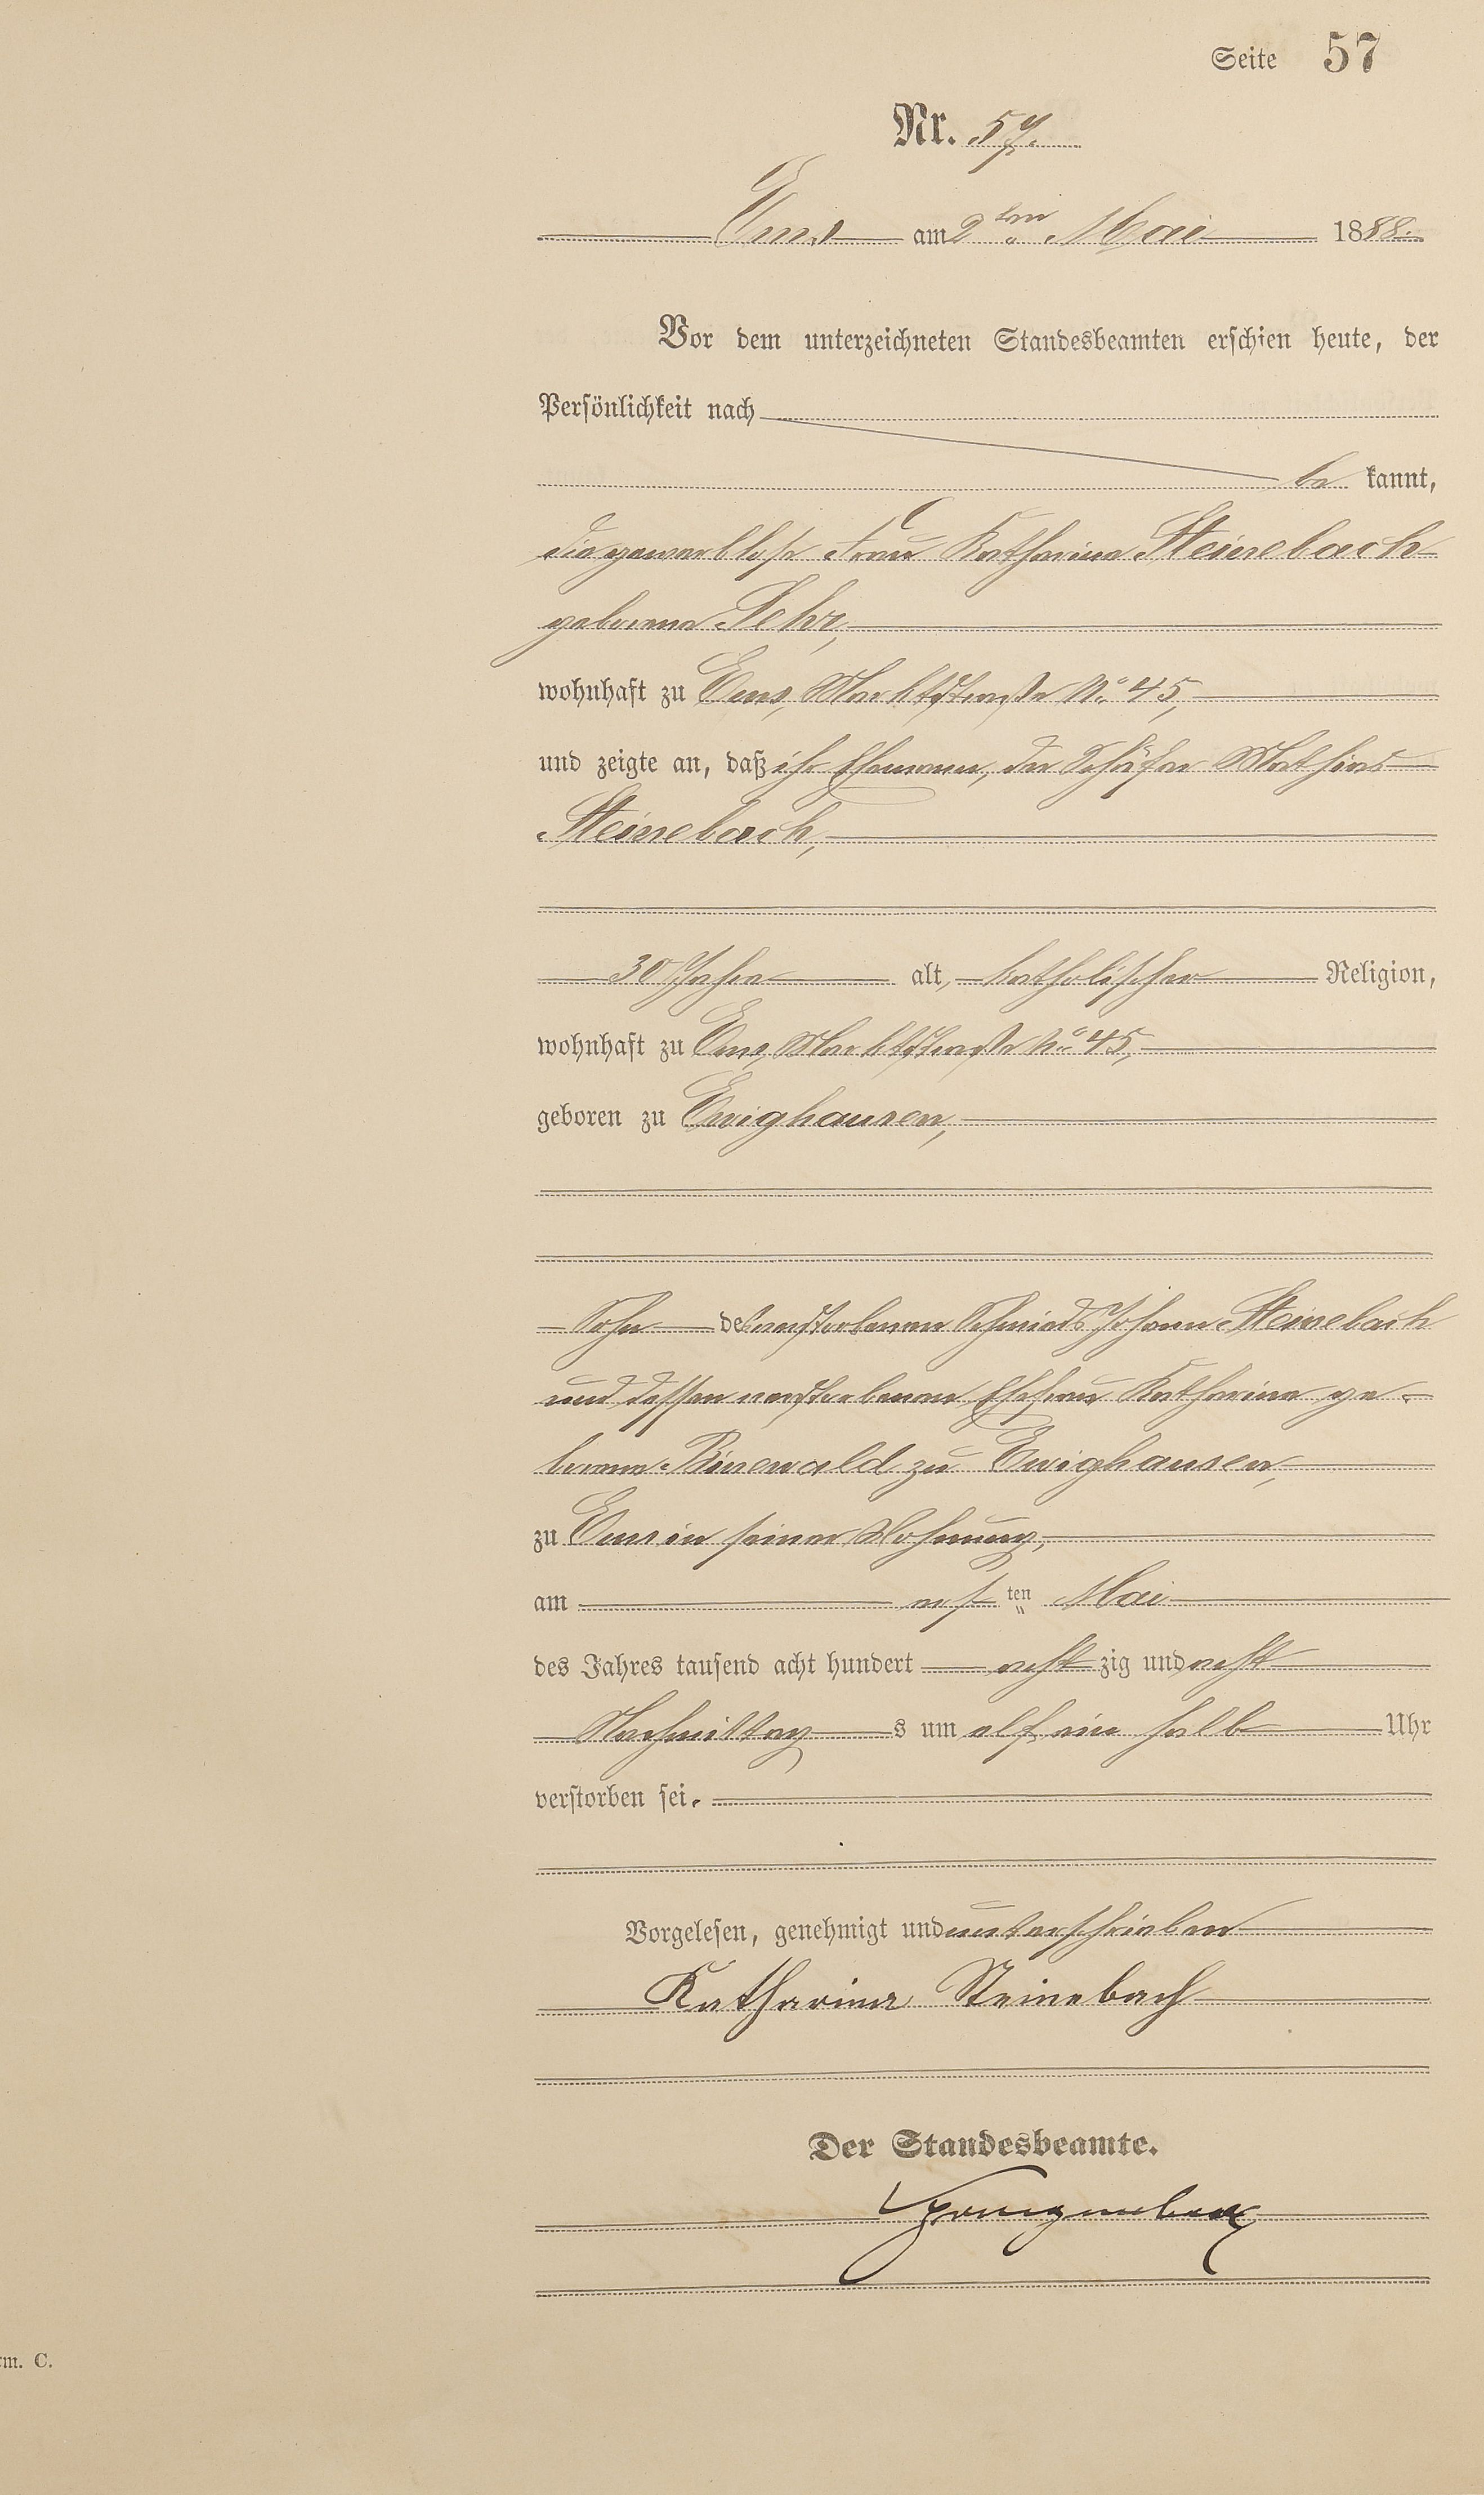 Seite 57
Nr. 57.
Ems am 2ten Mai 1888.
Vor dem unterzeichneten Standesbeamten erschien heute, der
Persönlichkeit nach
be kannt,
die gewerblose Frau Katharina Steinebach
geborene Sehr,
wohnhaft zu Ems, Marktstraße No. 45,
und zeigte an, daß ihr Ehemann, der Schäfer Mathias
Steinebach,
30 Jahre alt, katholischer Religion,
wohnhaft zu Ems, Marktstraße No. 45,
geboren zu Ewighausen,
Sohn des verstorbenen Schmieds Johann Steinebach
und dessen verstorbenen Ehefrau Katharina ge-
borene Binewald zu Ewighausen,
zu Ems in seiner Wohnung,
am ersten Mai
des Jahres tausend acht hundert acht zig und acht
Nachmittags um elf ein halb Uhr
verstorben sei.
Vorgelesen, genehmigt und unterschrieben
Katharina Steinebach
Der Standesbeamte.
m. C.